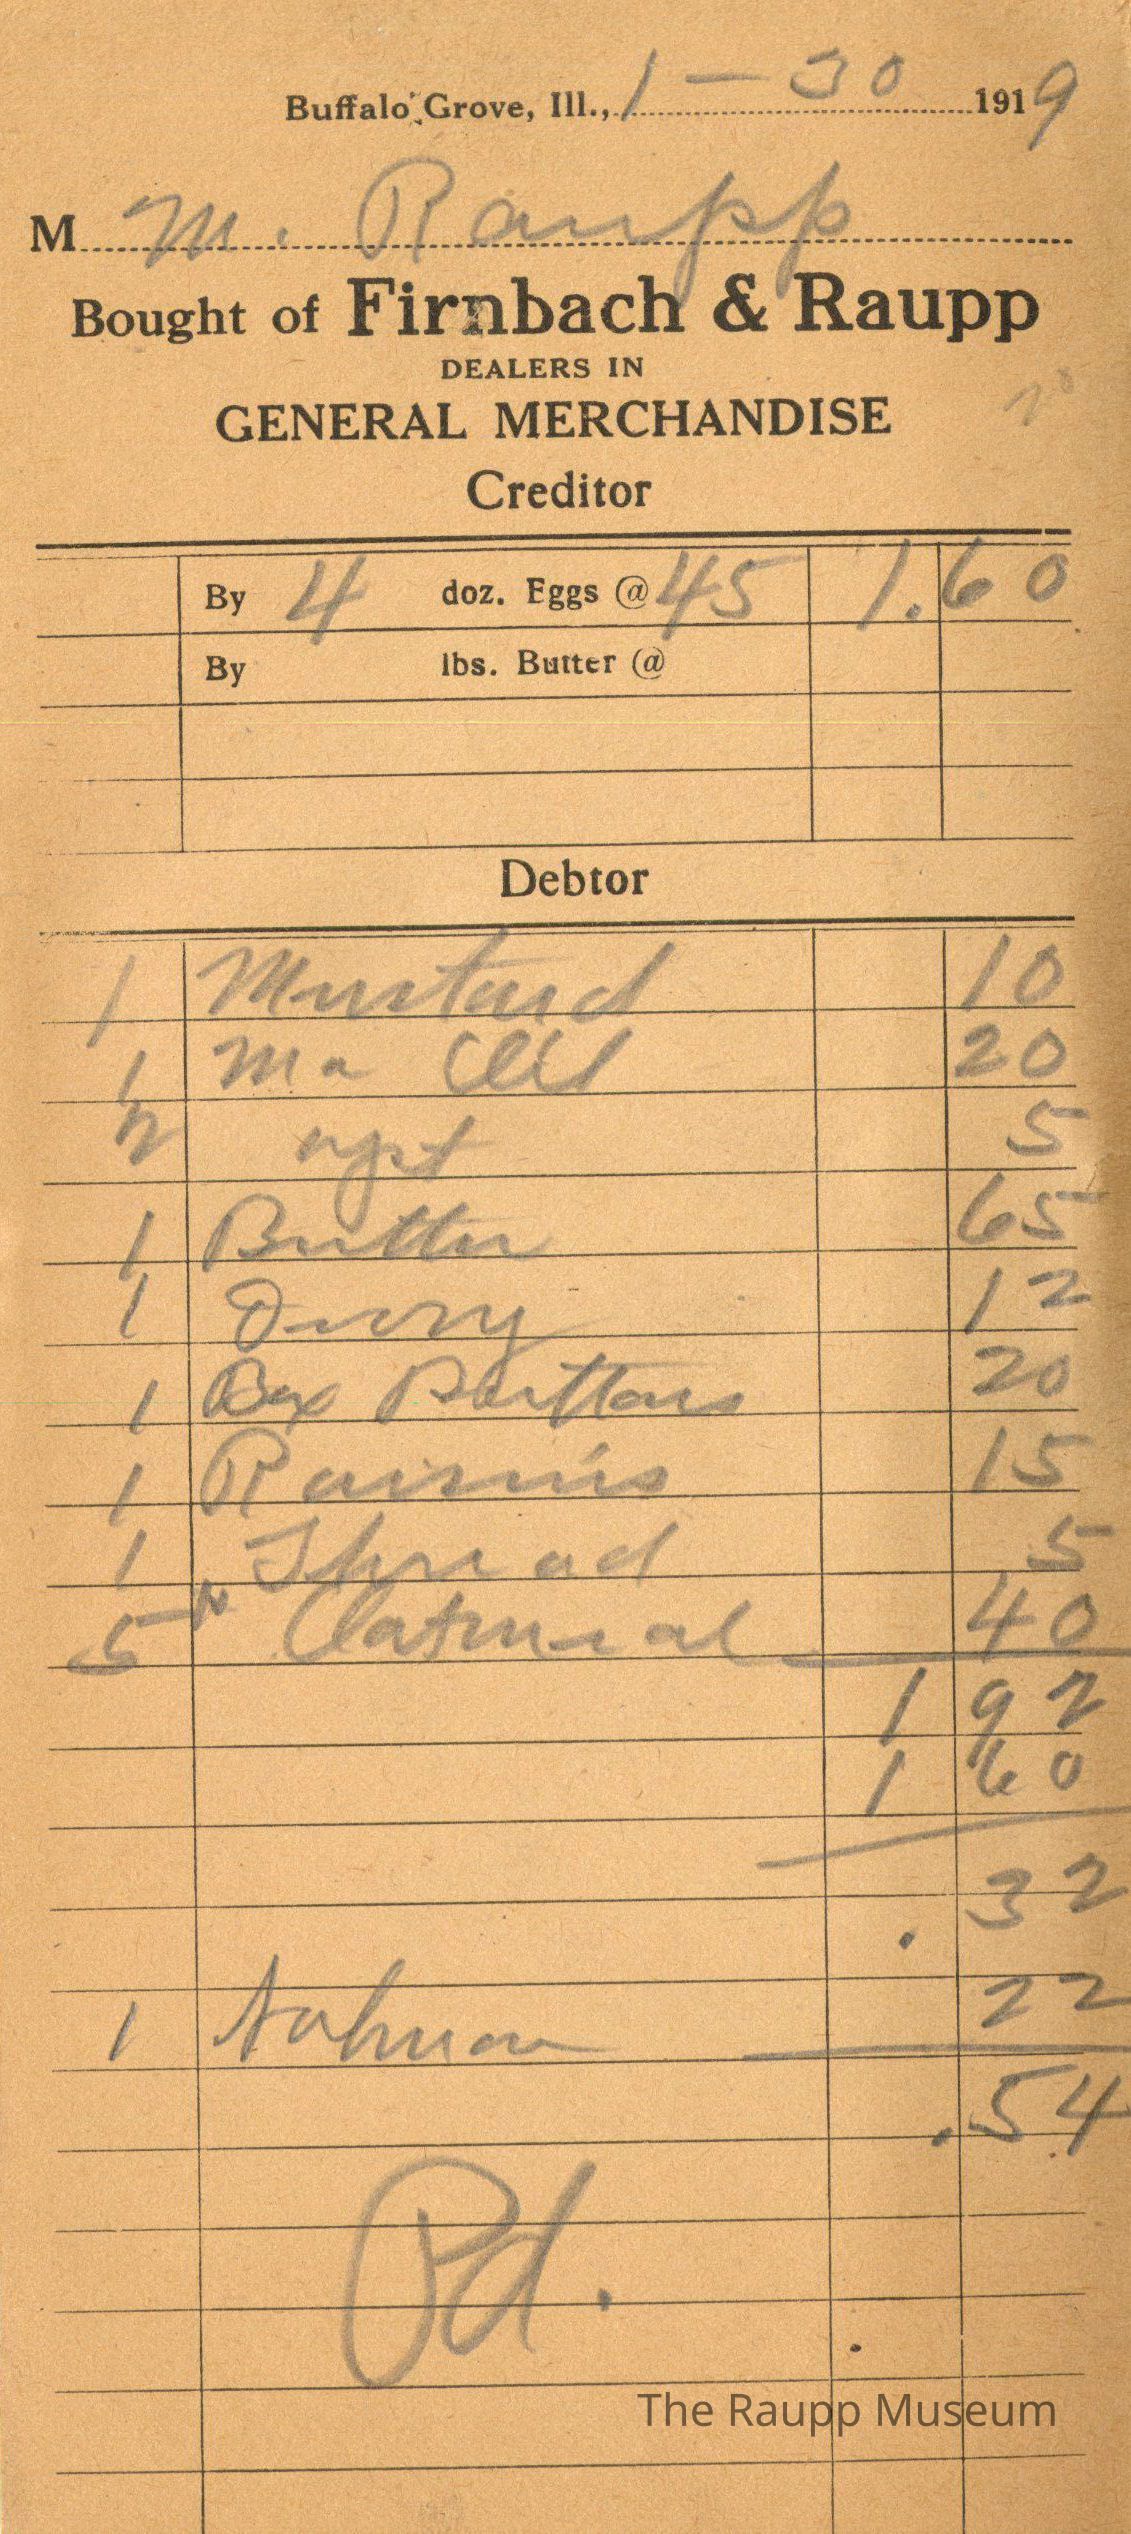 Buffalo Grove, Ill., 1 - 30 1919
M M. Raupp
Bought of Firnbach & Raupp
DEALERS IN
GENERAL MERCHANDISE
Creditor
By 4 doz. Eggs @ 45 1.60
By lbs. Butter @
Debtor
1 Mustard 10
1 Ma 20
2 5
1 Butter 65
1 Ivory 12
1 Box Buttons 20
1 Raisins 15
1 Thread 5
5 Oatmeal 40
1 92
1 60
.32
1 22
.54
Pd.
The Raupp Museum